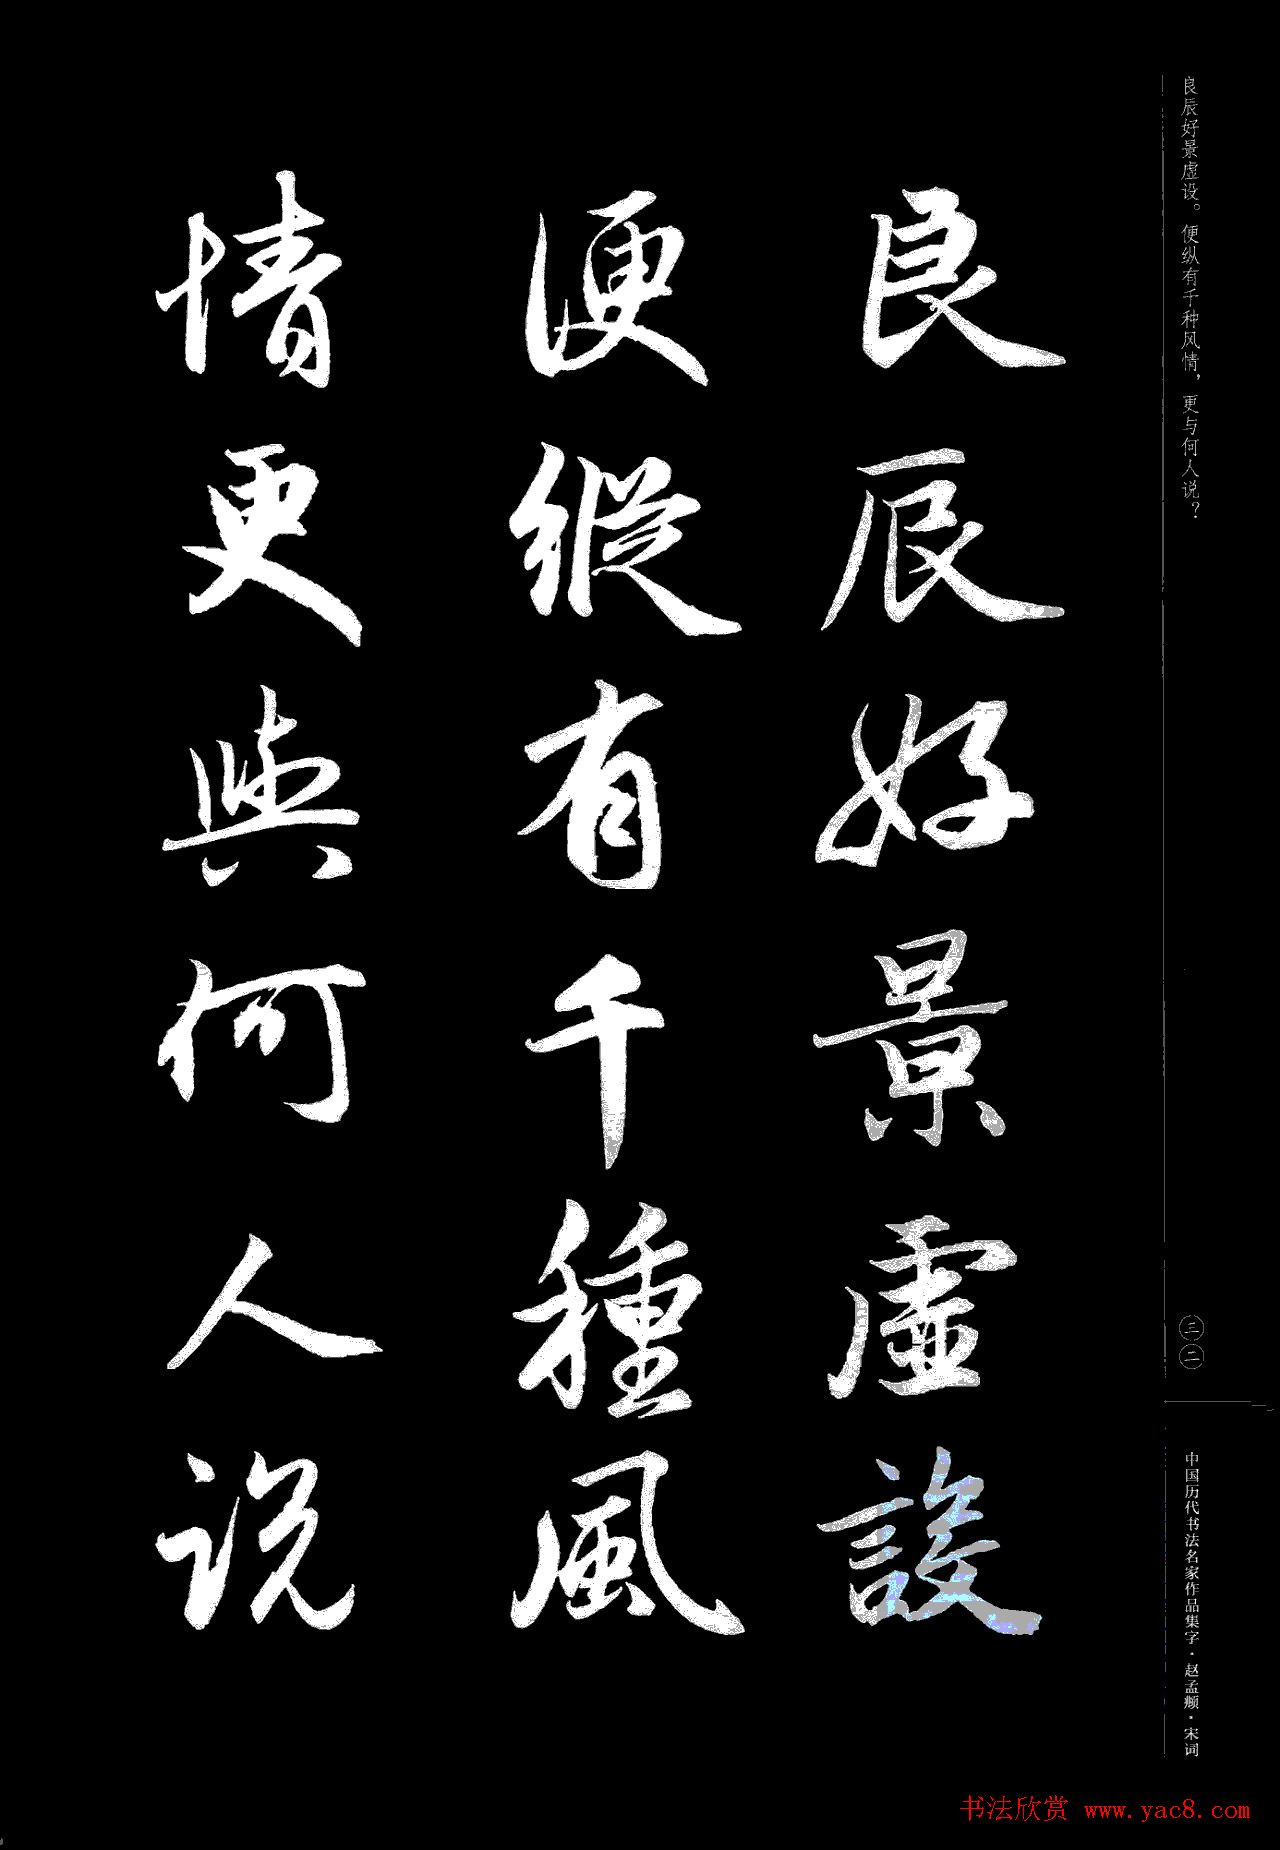 良辰好景虛設
便縱有千種風
情更與何人说
良辰好景虚设。便纵有千种风情，更与何人说？
三二
中国历代书法名家作品集字·赵孟頫·宋词
书法欣赏 www.yac8.com